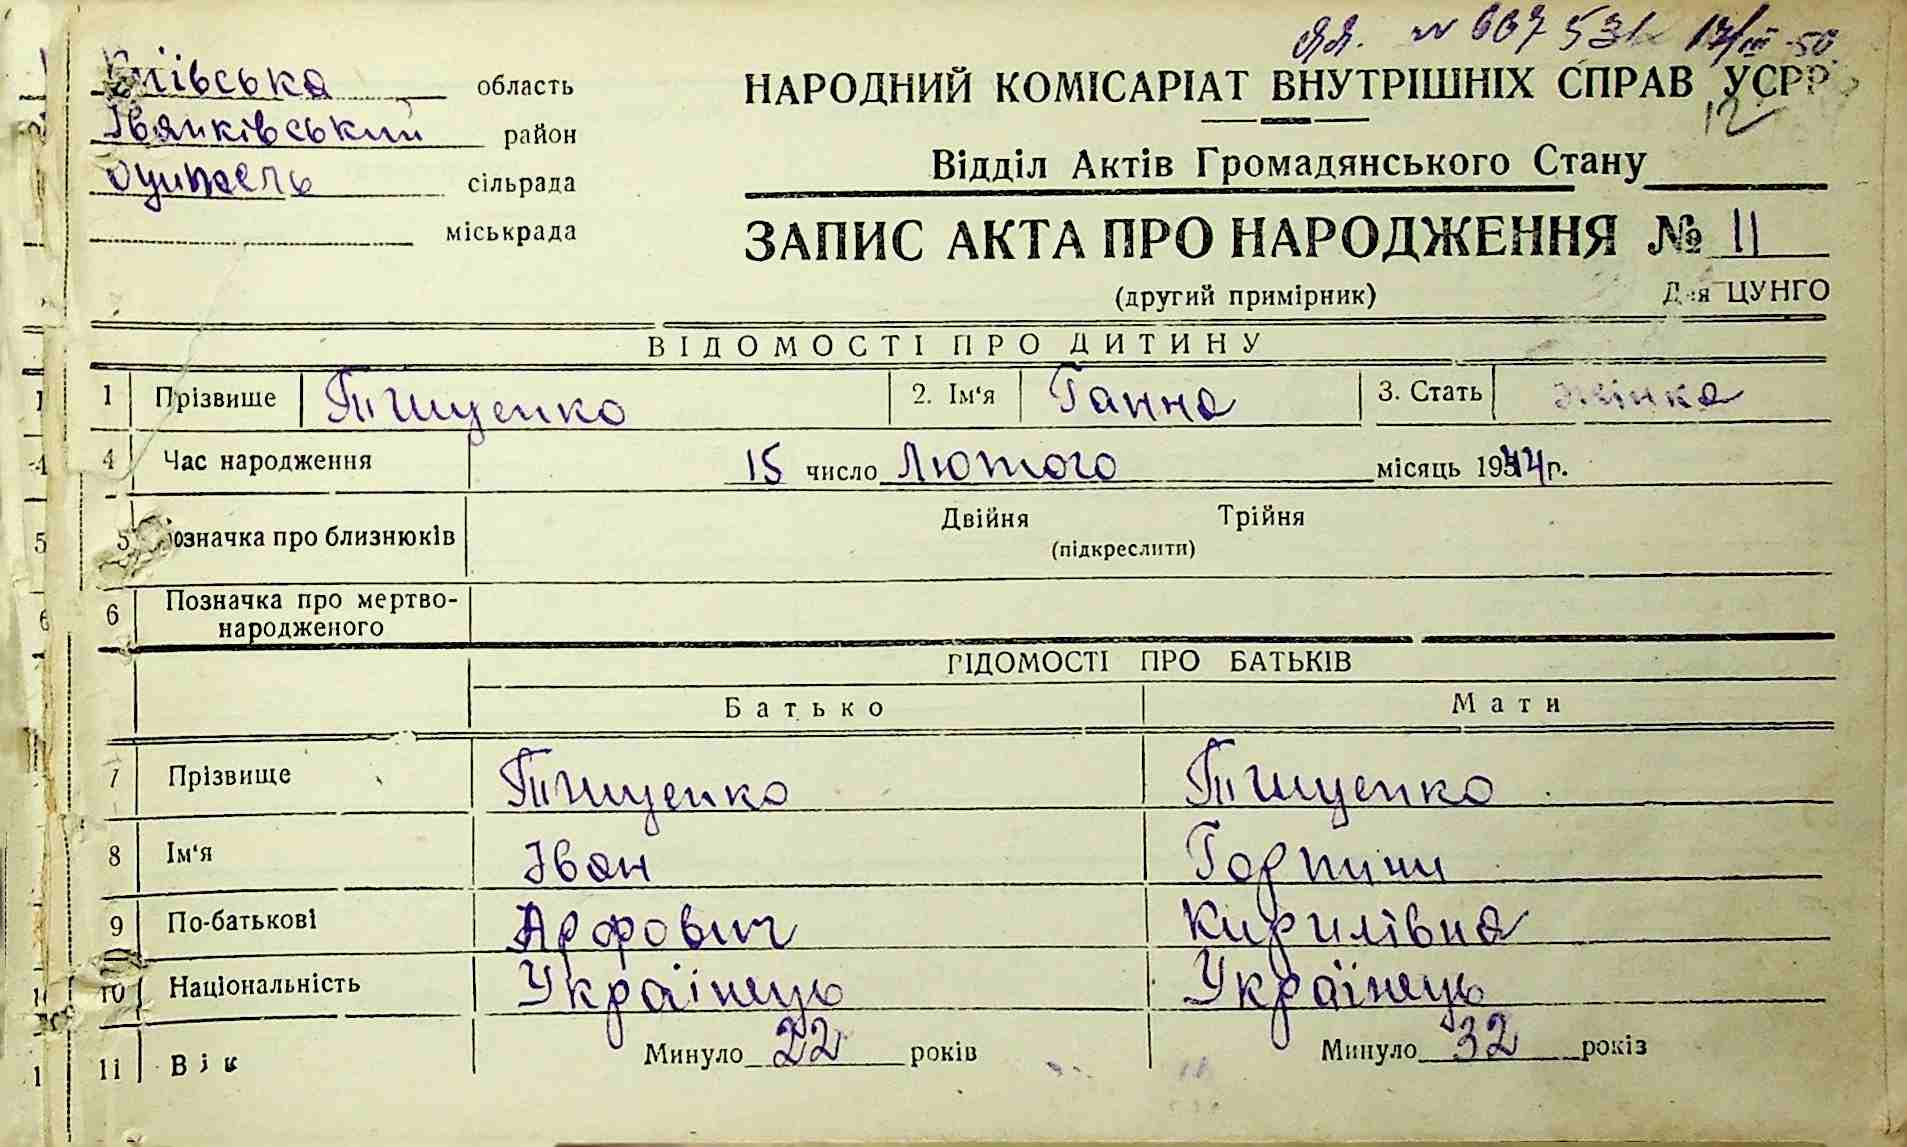 ЯЯ. N 667531 17/III-50
Київська область
Іванківський район
сільрада
міськрада
НАРОДНИЙ КОМІСАРІАТ ВНУТРІШНІХ СПРАВ УСРР
12
Відділ Актів Громадянського Стану
ЗАПИС АКТА ПРО НАРОДЖЕННЯ № 11
(другий примірник) Для ЦУНГО
ВІДОМОСТІ ПРО ДИТИНУ
1 Прізвище Тищенко 2. Ім'я Ганна 3. Стать жінка
4 Час народження 15 число Лютого місяць 1944 г.
5 Позначка про близнюків Двійня Трійня
(підкреслити)
6 Позначка про мертво-
народженого
ВІДОМОСТІ ПРО БАТЬКІВ
Батько Мати
7 Прізвище Тищенко Тищенко
8 Ім'я Іван Горпини
9 По-батькові Кирилівна
10 Національність Українець Українець
11 Вік Минуло 22 років Минуло 32 років